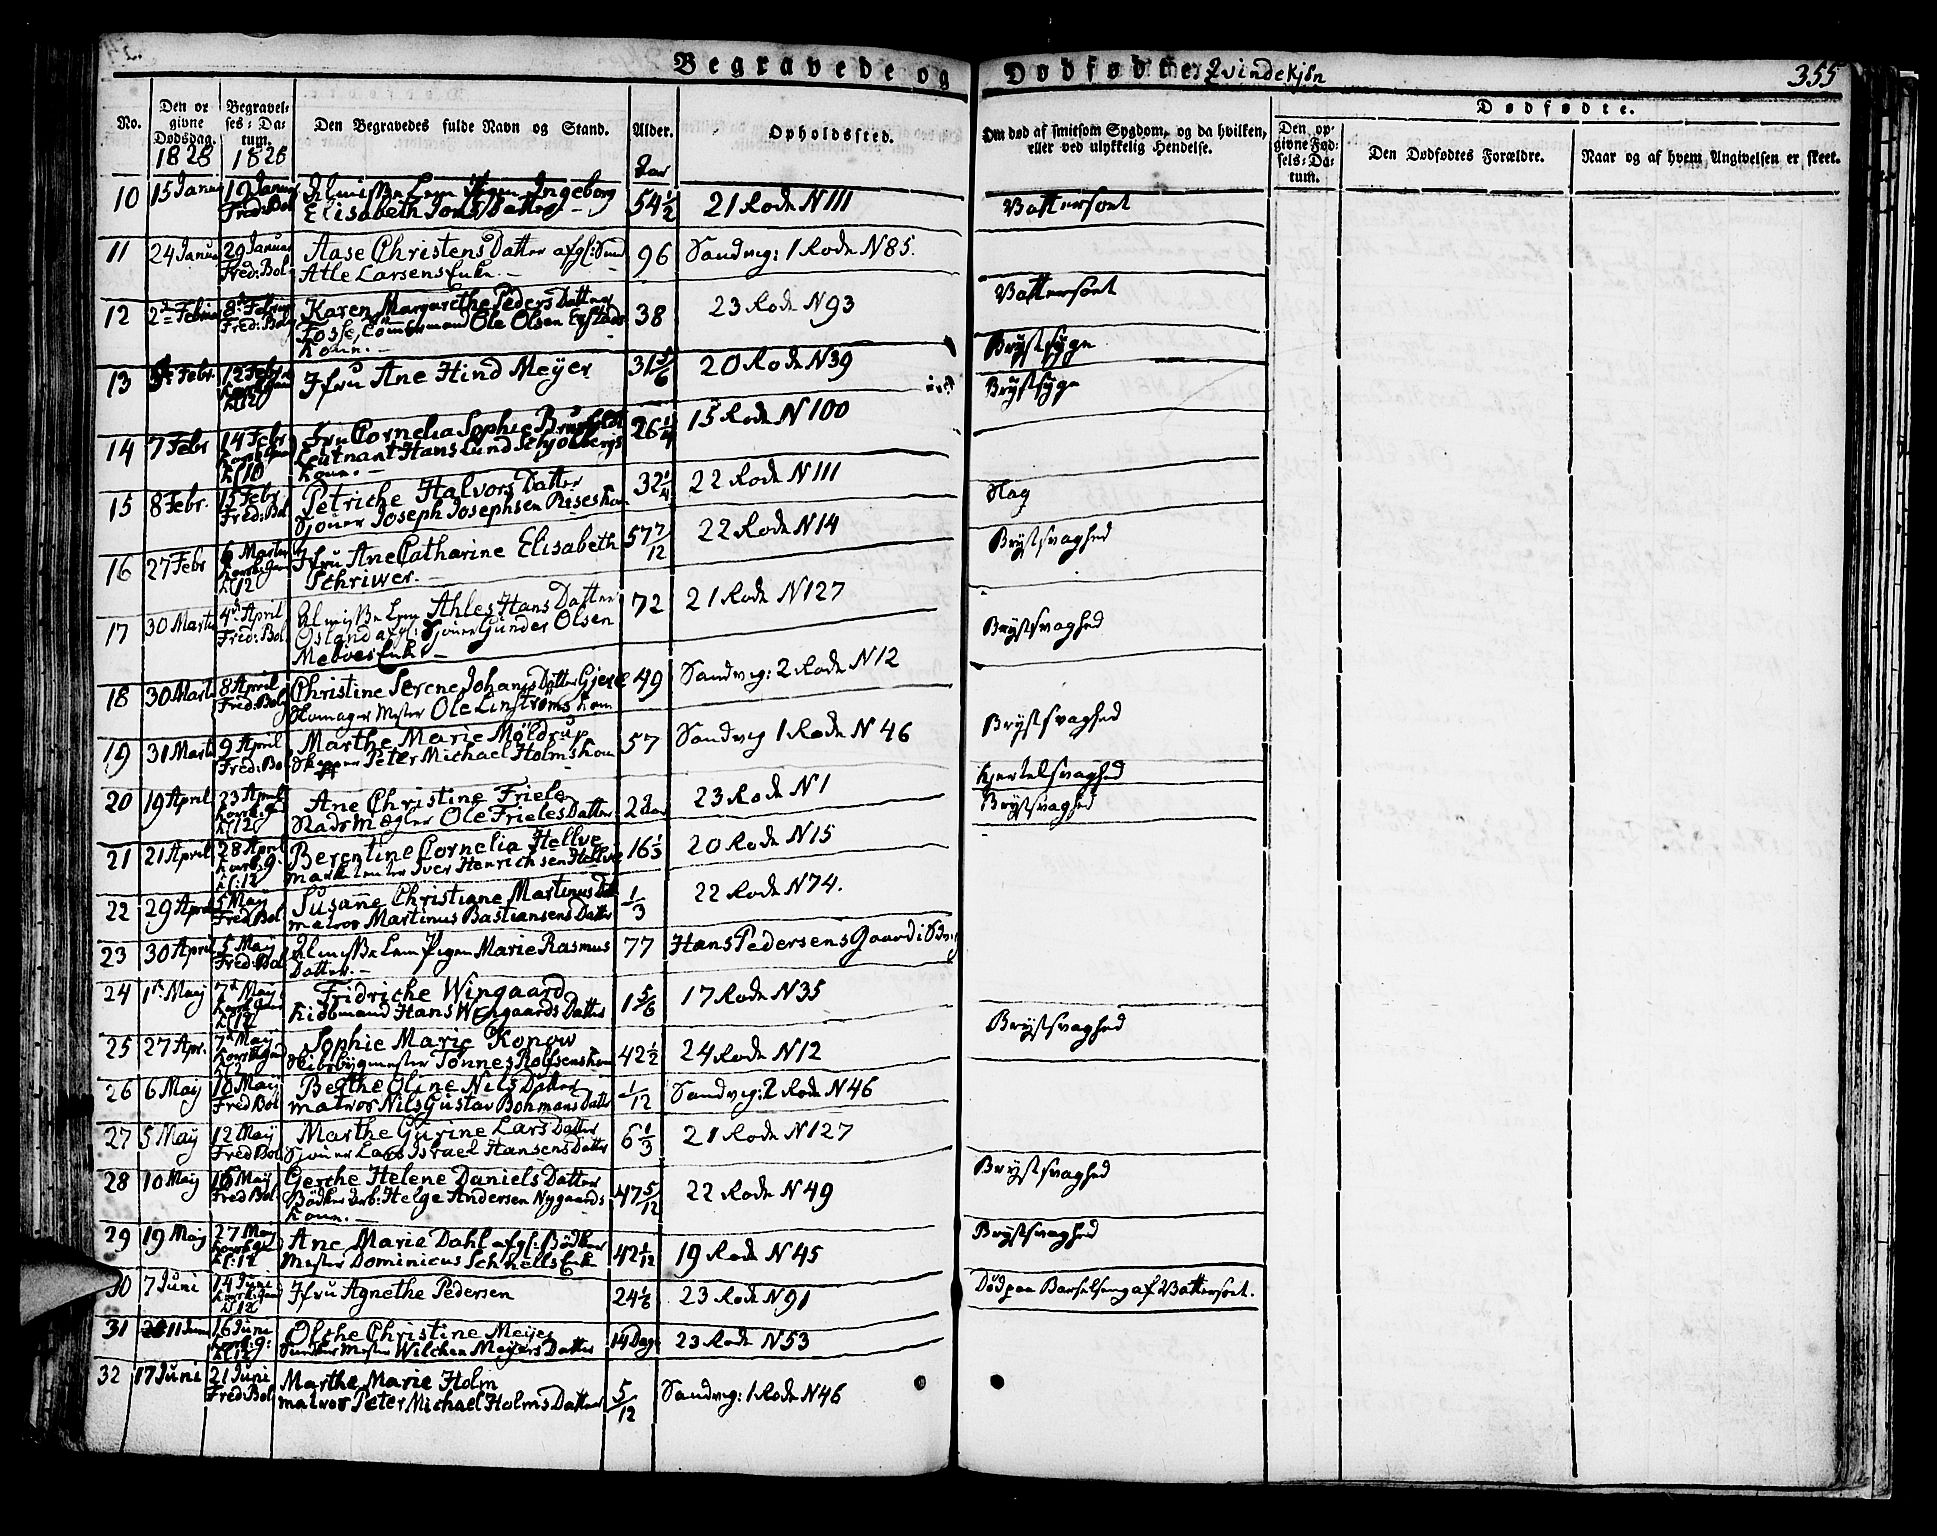 Begravede og Dødfødte Qvindekjøn
355
No.
Den opgivne Dødsdag.
Begravelses-Datum.
Den Begravedes fulde Navn og Stand.
Alder.
Opholdssted.
Om død af smitsom Sygdom, og da hvilken, eller ved ulykkelig Hendelse.
Dødfødte.
Den opgivne Fødsels-Datum.
Den Dødfødtes Forældre.
Naar og af hvem Angivelsen er skeet.
1828 1828 Aar
10 15 Janu 19 Janua Fred: Bol Ingeborg
Elisabeth Jons Datter 54 1/2 21 Rode N 111 Vattersoet
11 24 Janua 29 Janua Fred: Bol Aase Christens Datter afgl:
Atle Larsens Enke 96 Sandvig: 1 Rode N 85.
12 2de Febru 8de Febru Fred: Bol Karen Margarethe Peders Datter
Fosse, Tømmermand Ole Olsen
Kone. 38 23 Rode N 93 Vattersoet
13 Febr. 12 Febr Kl 12 Jfru Ane Hind Meyer 31 5/6 20 Rode N 39 Brystsyge
14 7 Febr 14 Febr Kl 10 Fru Cornelia Sophie
Leutnant Hans Lund Schjølbergs
Kone. 26 1/4 15 Rode N 100 Brystsyge
15 8 Febr. 15 Febr Fred: Bol Petriche Halvors Datter
Sjouer Joseph Josephsen Riises Kone 32 1/4 22 Rode N 111 Slag
16 27 Febr 6 Marts Kl 12 Jfru Ane Catharine Elisabeth
Schriwer. 57 7/12 22 Rode N 14 Brystsvaghed
17 30 Marts 4de April Fred: Bol Lem Ahles Hans Datter
Østand afgl: Sjouer Gunder Olsen
Enke 72 21 Rode N 127 Brystsvaghed
18 30 Marts 8 April Fred: Bol Christine Serene Johans Datter Gjerde
Skomager Mester Ole Linstrøms Kone 49 Sandvig: 2 Rode N 12
19 31 Marts 9 April Fred: Bol Marthe Marie Møldrup
Skipper Peter Michael Holms Kone 57 Sandvig 1 Rode N 46 Brystsvaghed
20 19 April 23 April Kl 12 Ane Christine Friele
Stads Mægler Ole Frieles Datter 2 Aar 23 Rode N 1 Kjertelsvaghed
21 21 April 28 April Kl: 12 Berentine Cornelia Hellve
Marketenter Iver Henrichsen Hellve 16 1/3 20 Rode N 15 Brystsvaghed
22 29 April 5 May Fred Bol Susane Christiane Martinus Dat
Matros Martinus Bastiansens Datter 1/3 22 Rode N 74.
23 30 April 5 May Fred: Bol Lem Pigen Marie Rasmus
Datter. 77 Hans Pedersens Gaard i
24 1te May 7de May Kl 12 Fridriche Wingaard
Kiøbmand Hans Wingaards Datter 1 5/6 17 Rode N 35
25 27 Apr. 7de May Sophie Marie Konow
Skibsbygmester Tønnes Rolfsens Kone 42 1/2 24 Rode N 12 Brystsvaghed
26 6 May 10 May Fred Bol Berthe Oline Nils Datter
Matros Nils Gustav Bohmans Datter 1/12 Sandvig: 2 Rode N 46
27 5 May 12 May Fred Bol Marthe Gurine Lars Datter
Sjouer Lars Israel Hansens Datter 6 1/3 21 Rode N 127
28 10 May 16 May Fred Bol Gerthe Helene Daniels Datter
Bødker Helge Andersen Nygaards
Kone. 47 5/12 22 Rode N 49 Brystsvaghed
29 19 May 27 May Kl: 12 Ane Marie Dahl afgl: Bødker
Mester Dominicus Schnells Enke 42 1/12 19 Rode N 45 Brystsvaghed
30 7 Juni 14 Juni Kl 12 Jfru Agnethe Pedersen 24 1/6 23 Rode N 91 Død paa Barselseng af Vattersoet.
31 11 Juni 16 Juni Kl 12 Olche Christine Meyer
Mester Wilchen Meyers Datter 14 Dage 23 Rode N 53
32 17 Juni 21 Juni Fred: Bol Marthe Marie Holm
Matros Peter Michael Holms Datter 5/12 Sandvig: 1 Rode N 46